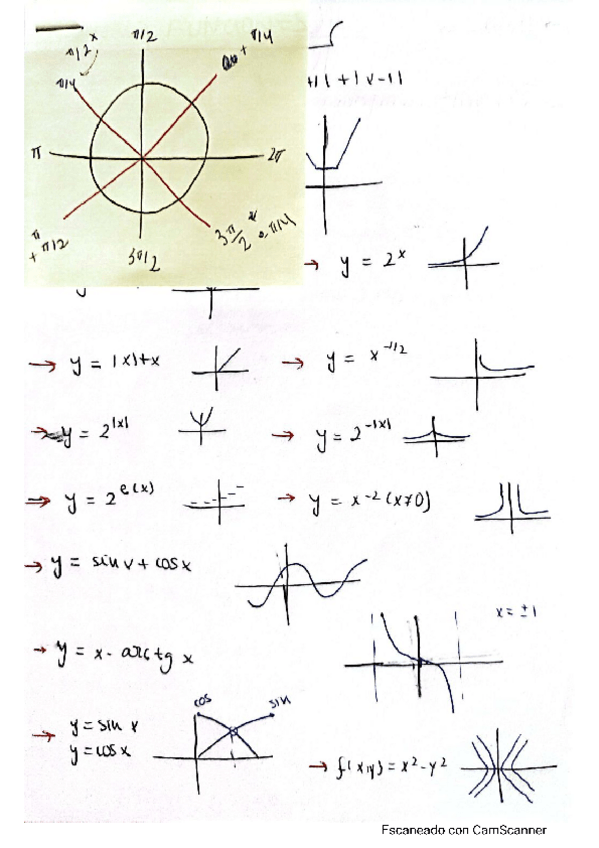 π/2
π/4
π
2π
3π/2
+ π/2
3π/2
→ y = 2^x
→ y = |x|+x
→ y = x^-1/2
→ y = 2^|x|
→ y = 2^-|x|
→ y = 2^e(x)
→ y = x^-2 (x≠0)
→ y = sin x + cos x
x = ±1
→ y = x - arctg x
cos
sin
→ y = sin x
y = cos x
→ f(x,y) = x²-y²
Escaneado con CamScanner